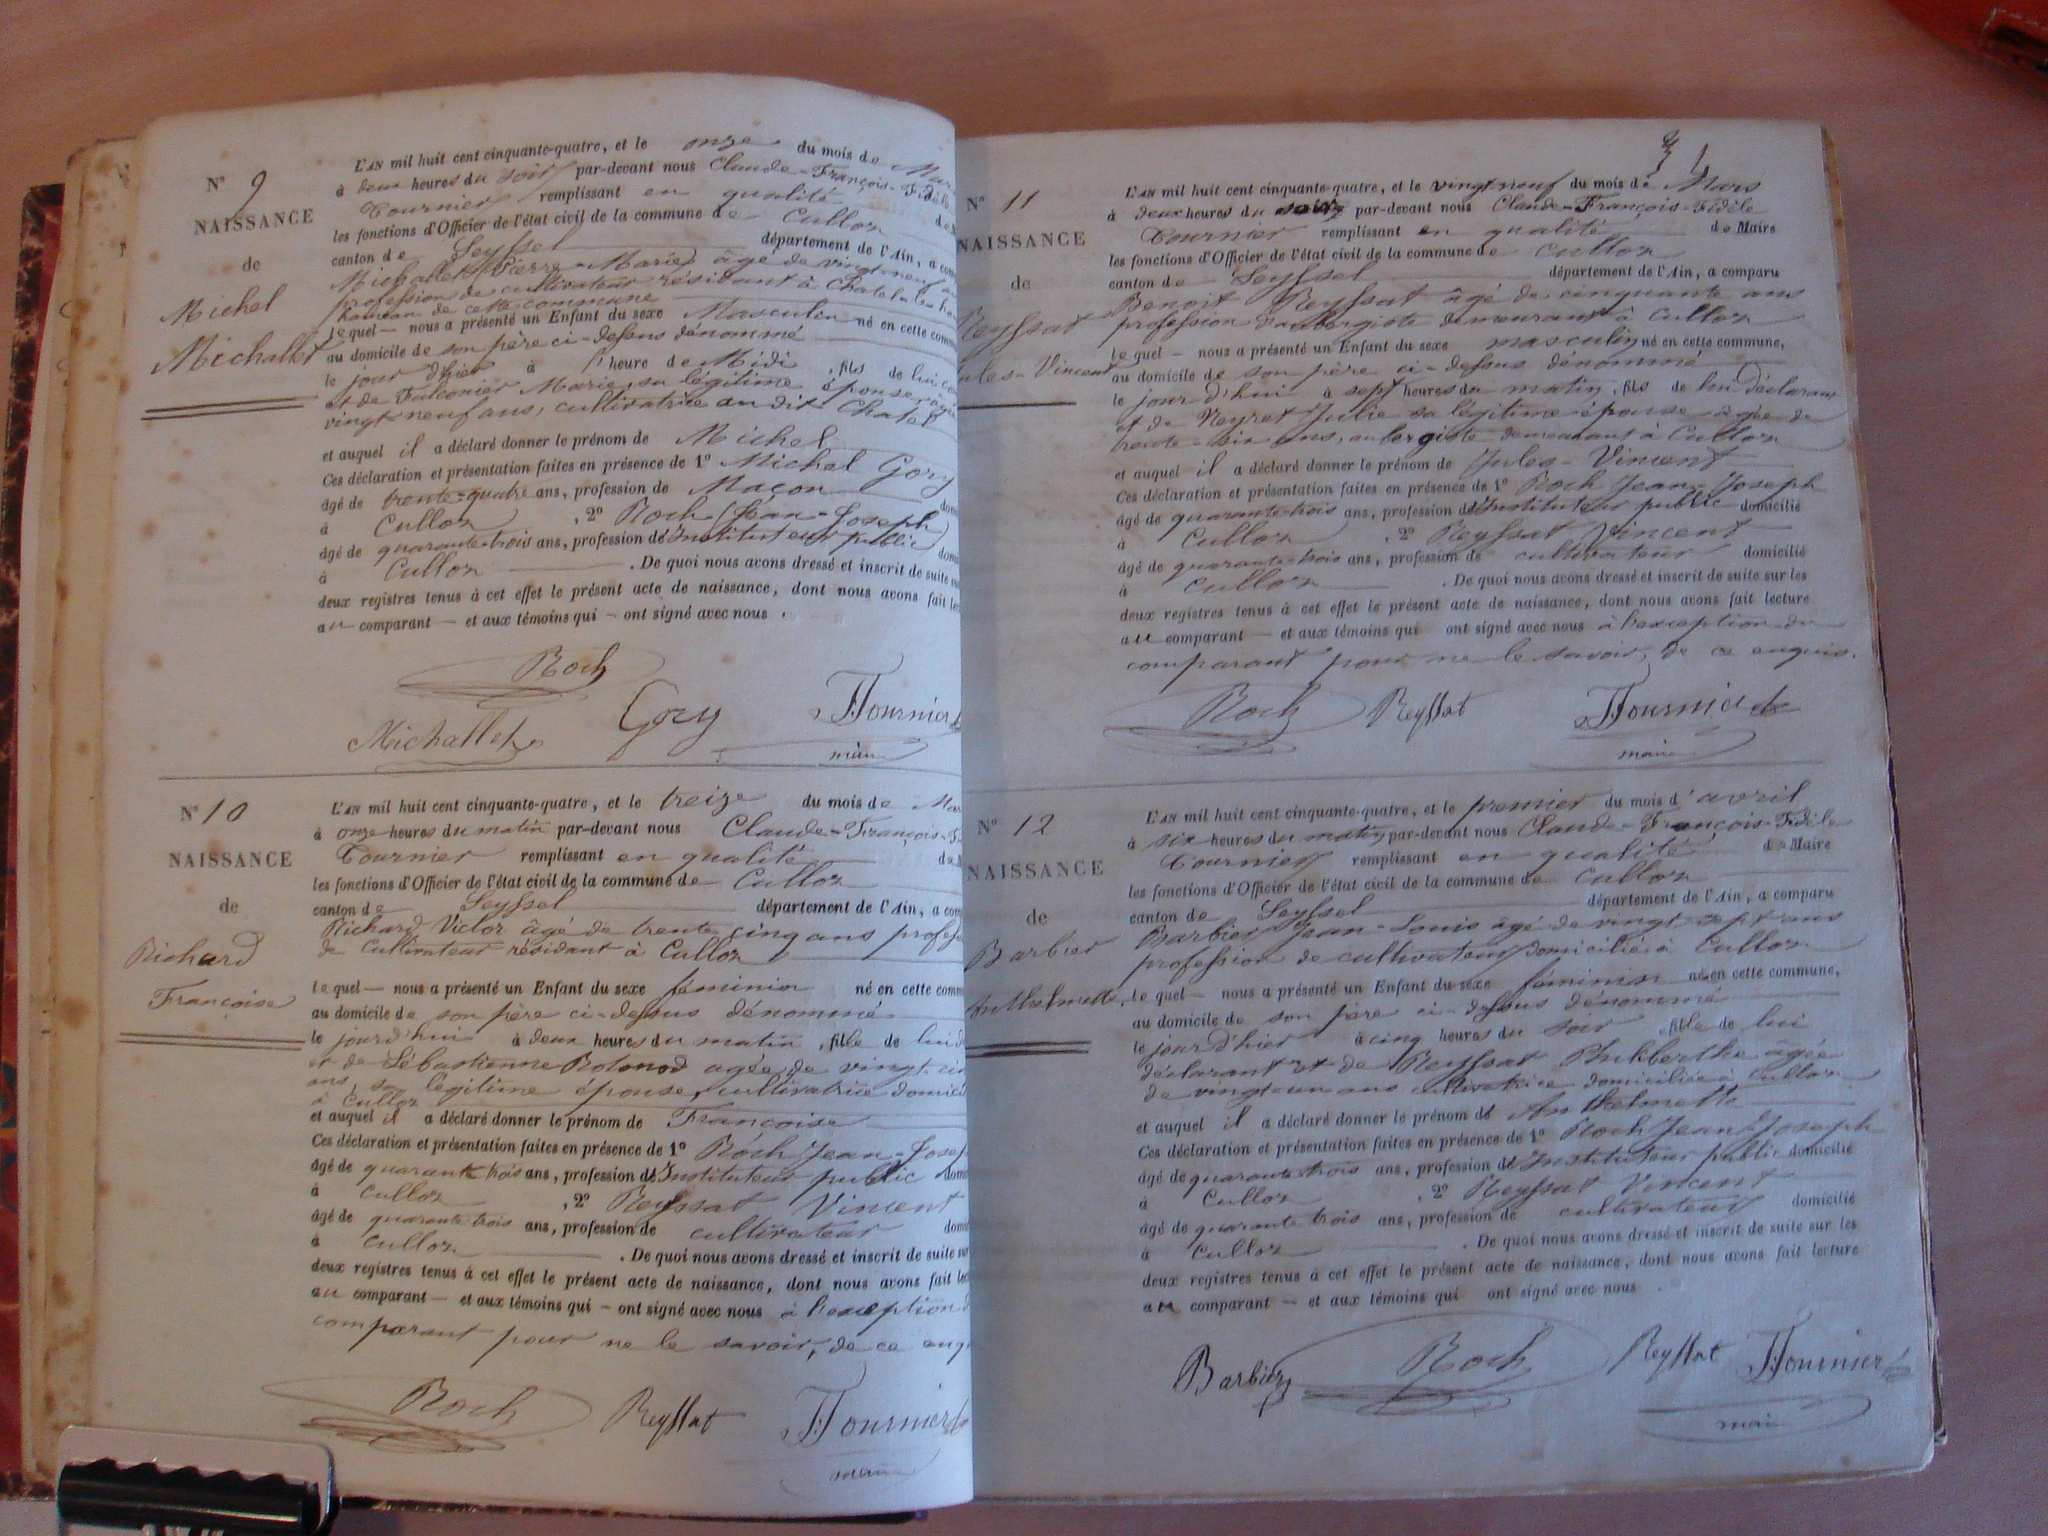 N° 9
NAISSANCE
de
Michel
Michallet
L'AN mil huit cent cinquante-quatre, et le onze du mois de Mar
à deux heures du soir par-devant nous Claude-François-Fidèle
Tournier remplissant en qualité de M
les fonctions d'Officier de l'état civil de la commune de Culloz
canton de Seyssel département de l'Ain, a com
Michallet Pierre-Marie âgé de vingt-neuf an
profession de cultivateur résidant à Chatel
hameau de cette commune
lequel — nous a présenté un Enfant du sexe Masculin né en cette comm
au domicile de son père ci-dessus dénommé
le jour d'hier à l'heure de Midi, fils de lui
et de Falconier Marie, sa légitime épouse, âgée
vingt neuf ans, cultivatrice au dit Chatel
et auquel il a déclaré donner le prénom de Michel
Ces déclaration et présentation faites en présence de 1° Michel Gory
âgé de trente-quatre ans, profession de Maçon dom
à Culloz, 2° Roch Jean-Joseph
âgé de quarante-trois ans, profession d'Instituteur public dom
à Culloz. De quoi nous avons dressé et inscrit de suite sur
deux registres tenus à cet effet le présent acte de naissance, dont nous avons fait lec
au comparant — et aux témoins qui — ont signé avec nous.
Roch
Michallet Gory Tournier
maire
N° 10
NAISSANCE
de
Richard
Françoise
L'AN mil huit cent cinquante-quatre, et le treize du mois de Mar
à onze heures du matin par-devant nous Claude-François-Fi
Tournier remplissant en qualité de M
les fonctions d'Officier de l'état civil de la commune de Culloz
canton de Seyssel département de l'Ain, a com
Richard Victor âgé de trente cinq ans profess
de cultivateur résidant à Culloz
lequel — nous a présenté un Enfant du sexe féminin né en cette comm
au domicile de son père ci-dessus dénommé
le jourd'hui à deux heures du matin, fille de lui d
et de Sébastienne Rotonod agée de vingt
ans, sa légitime épouse, cultivatrice domicil
à Culloz
et auquel il a déclaré donner le prénom de Françoise
Ces déclaration et présentation faites en présence de 1° Roch Jean-Josep
âgé de quarante trois ans, profession d'Instituteur public dom
à Culloz, 2° Reyssat Vincent
âgé de quarante-trois ans, profession de cultivateur dom
à Culloz. De quoi nous avons dressé et inscrit de suite sur
deux registres tenus à cet effet le présent acte de naissance, dont nous avons fait lec
au comparant — et aux témoins qui — ont signé avec nous à l'exception d
comparant pour ne le savoir, de ce enq
Roch Reyssat Tournier
maire
N° 11
NAISSANCE
de
Reyssat
Jules-Vincent
L'AN mil huit cent cinquante-quatre, et le vingt neuf du mois de Mars
à deux heures du soir par-devant nous Claude-François-Fidèle
Tournier remplissant en qualité de Maire
les fonctions d'Officier de l'état civil de la commune de Culloz
canton de Seyssel département de l'Ain, a comparu
Benoit Reyssat âgé de cinquante ans
profession d'aubergiste demeurant à Culloz
lequel — nous a présenté un Enfant du sexe masculin né en cette commune,
au domicile de son père ci-dessus dénommé
le jourd'hui à sept heures du matin, fils de lui déclarant
et de Neyret Julie sa légitime épouse agée de
trente-six ans, aubergiste demeurant à Culloz
et auquel il a déclaré donner le prénom de Jules-Vincent
Ces déclaration et présentation faites en présence de 1° Roch Jean-Joseph
âgé de quarante-trois ans, profession d'Instituteur public domicilié
à Culloz, 2° Reyssat Vincent
âgé de quarante-trois ans, profession de cultivateur domicilié
à Culloz. De quoi nous avons dressé et inscrit de suite sur les
deux registres tenus à cet effet le présent acte de naissance, dont nous avons fait lecture
au comparant — et aux témoins qui ont signé avec nous à l'exception du
comparant pour ne le savoir, de ce enquis.
Roch Reyssat Tournier
maire
N° 12
NAISSANCE
de
Barbier
Anthelmette
L'AN mil huit cent cinquante-quatre, et le premier du mois d'avril
à six heures du matin par-devant nous Claude-François-Fidèle
Tournier remplissant en qualité de Maire
les fonctions d'Officier de l'état civil de la commune de Culloz
canton de Seyssel département de l'Ain, a comparu
Barbier Jean-Louis âgé de vingt sept ans
profession de cultivateur domicilié à Culloz
lequel — nous a présenté un Enfant du sexe féminin né en cette commune,
au domicile de son père ci-dessus dénommé
le jour d'hier à cinq heures du soir, fille de lui
déclarant et de Reyssat Philiberthe âgée
de vingt-un ans cultivatrice domiciliée à Culloz
et auquel il a déclaré donner le prénom d'Anthelmette
Ces déclaration et présentation faites en présence de 1° Roch Jean-Joseph
âgé de quarante trois ans, profession d'Instituteur public domicilié
à Culloz, 2° Reyssat Vincent
âgé de quarante trois ans, profession de cultivateur domicilié
à Culloz. De quoi nous avons dressé et inscrit de suite sur les
deux registres tenus à cet effet le présent acte de naissance, dont nous avons fait lecture
au comparant — et aux témoins qui ont signé avec nous.
Barbier Roch Reyssat Tournier
maire